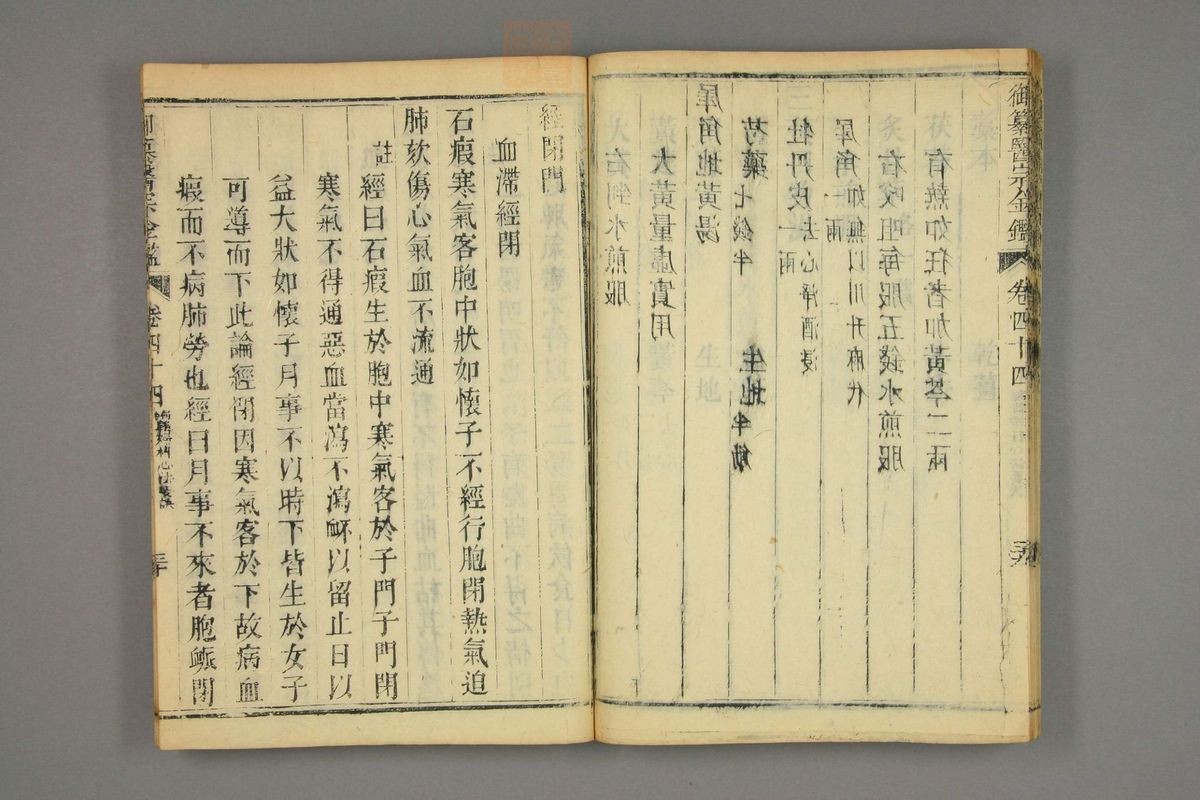 右剉水煎服
大黃量虛實用
犀角地黃湯
芍藥七錢半 生地半觔
牡丹皮去心淨酒浸一兩
犀角一兩如無以川升麻代
右㕮咀每服五錢水煎服
有熱如狂者加黃芩二兩
御纂醫宗金鑑 卷四十四
經閉門
血滯經閉
石瘕寒氣客胞中狀如懷子不經行胞閉熱氣迫
肺欬傷心氣血不流通
註經曰石瘕生於胞中寒氣客於子門子門閉
寒氣不得通惡血當瀉不瀉衃以留止日以
益大狀如懷子月事不以時下皆生於女子
可導而下此論經閉因寒氣客於下故病血
瘕而不病肺勞也經曰月事不來者胞䘑閉
御纂醫宗金鑑 卷四十四 婦科心法要訣 三十